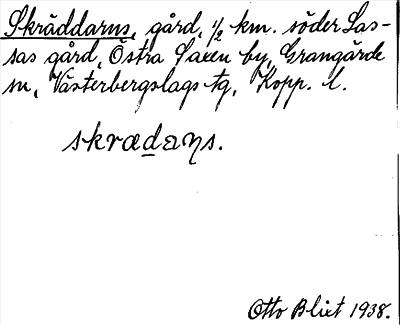 Skräddarns, gård, 1/2 km. söder Las-
sas gård, Östra Saxen by, Grangärde
sn, Västerbergslags tg, Kopp. l.
skrædaɳs.
Otto Blixt 1938.